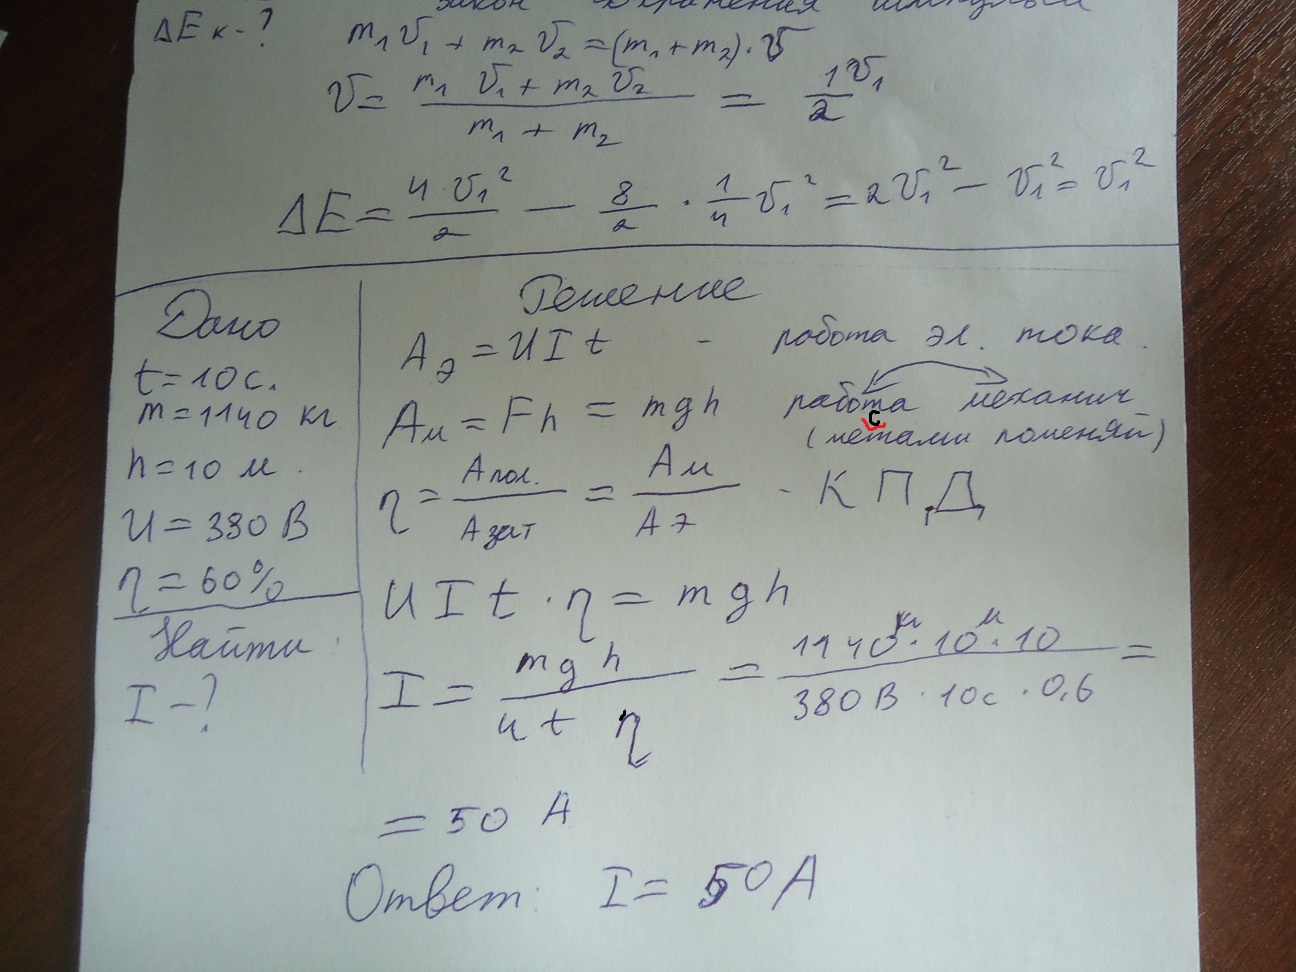 закон сохранения импульса
ΔEк-?
m₁υ₁ + m₂υ₂ = (m₁+m₂)·υ
υ = (m₁ υ₁ + m₂ υ₂)/(m₁ + m₂) = 1/2 υ₁
ΔE = 4υ₁²/2 − 8/2 · 1/4 υ₁² = 2υ₁² − υ₁² = υ₁²
Дано
t=10с.
m=1140 кг
h=10 м.
U=380 В
η=60%
Найти:
I-?
Решение
Aэ = UIt - работа эл. тока.
Aм = Fh = mgh работа механич
с
(метами поменяй)
η = Aпол./Aзат = Aм/Aэ - КПД
UIt·η = mgh
I = mgh/(ut η) = (1140кг·10м·10)/(380В·10с·0,6) =
= 50 А
Ответ: I = 50А